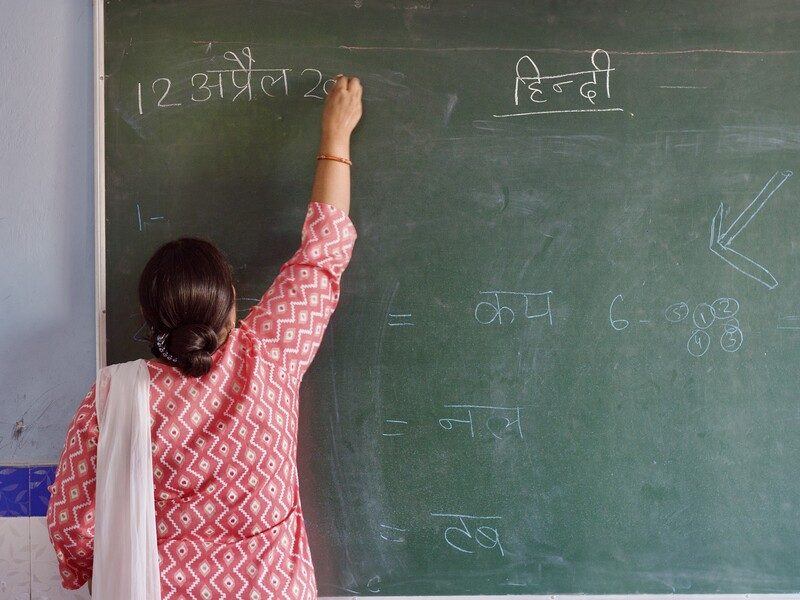 12 अप्रैल 20
हिन्दी
1-
= कप
6- ⑤ ① ② =
④ ③
= नल
= टब